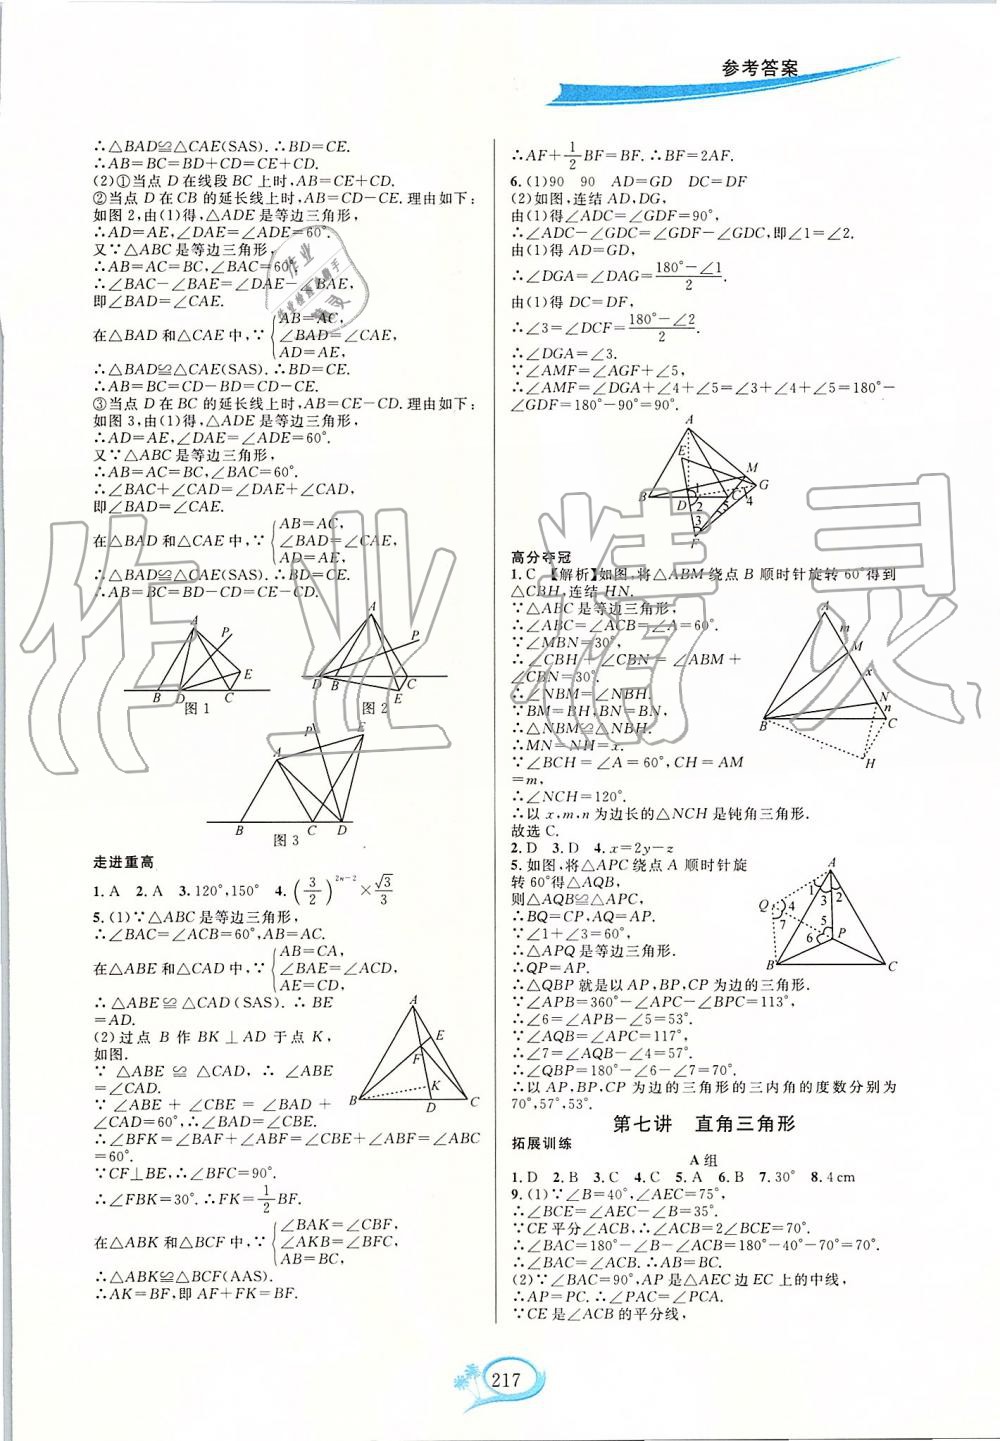 参考答案
∴△BAD≌△CAE(SAS).∴BD=CE.
∴AB=BC=BD+CD=CE+CD.
(2)①当点 D 在线段 BC 上时,AB=CE+CD.
②当点 D 在 CB 的延长线上时,AB=CD-CE.理由如下:
如图 2,由(1)得,△ADE 是等边三角形,
∴AD=AE,∠DAE=∠ADE=60°.
又∵△ABC 是等边三角形,
∴AB=AC=BC,∠BAC=60°.
∴∠BAC-∠BAE=∠DAE-∠BAE,
即∠BAD=∠CAE.
在△BAD 和△CAE 中,∵{AB=AC,
∠BAD=∠CAE,
AD=AE,
∴△BAD≌△CAE(SAS).∴BD=CE.
∴AB=BC=CD-BD=CD-CE.
③当点 D 在 BC 的延长线上时,AB=CE-CD.理由如下:
如图 3,由(1)得,△ADE 是等边三角形,
∴AD=AE,∠DAE=∠ADE=60°.
又∵△ABC 是等边三角形,
∴AB=AC=BC,∠BAC=60°.
∴∠BAC+∠CAD=∠DAE+∠CAD,
即∠BAD=∠CAE.
在△BAD 和△CAE 中,∵{AB=AC,
∠BAD=∠CAE,
AD=AE,
∴△BAD≌△CAE(SAS).∴BD=CE.
∴AB=BC=BD-CD=CE-CD.
A P E B D C
图 1
A P D B C E
图 2
P E A B C D
图 3
走进重高
1. A 2. A 3. 120°,150° 4. (3/2)^{2n-2}×√3/3
5. (1)∵△ABC 是等边三角形,
∴∠BAC=∠ACB=60°,AB=AC.
在△ABE 和△CAD 中,∵{AB=CA,
∠BAE=∠ACD,
AE=CD,
∴△ABE≌△CAD(SAS).∴BE
=AD.
(2)过点 B 作 BK⊥AD 于点 K,
如图.
∵△ABE≌△CAD,∴∠ABE
=∠CAD.
∵∠ABE+∠CBE=∠BAD+
∠CAD=60°,∴∠BAD=∠CBE.
∴∠BFK=∠BAF+∠ABF=∠ABE+∠ABF=∠ABC
=60°.
∵CF⊥BE,∴∠BFC=90°.
∴∠FBK=30°.∴FK=1/2 BF.
在△ABK 和△BCF 中,∵{∠BAK=∠CBF,
∠AKB=∠BFC,
AB=BC,
∴△ABK≌△BCF(AAS).
∴AK=BF,即 AF+FK=BF.
A E F K B D C
∴AF+1/2 BF=BF.∴BF=2AF.
6. (1)90 90 AD=GD DC=DF
(2)如图,连结 AD,DG,
由(1)得∠ADC=∠GDF=90°,
∴∠ADC-∠GDC=∠GDF-∠GDC,即∠1=∠2.
由(1)得 AD=GD,
∴∠DGA=∠DAG=(180°-∠1)/2.
由(1)得 DC=DF,
∴∠3=∠DCF=(180°-∠2)/2.
∴∠DGA=∠3.
∵∠AMF=∠AGF+∠5,
∴∠AMF=∠DGA+∠4+∠5=∠3+∠4+∠5=180°-
∠GDF=180°-90°=90°.
A E M G B D 1 2 C 4 5 3 F
高分夺冠
1. C 【解析】如图,将△ABM 绕点 B 顺时针旋转 60°得到
△CBH,连结 HN.
∵△ABC 是等边三角形,
∴∠ABC=∠ACB=∠A=60°.
∵∠MBN=30°,
∴∠CBH+∠CBN=∠ABM+
∠CBN=30°.
∴∠NBM=∠NBH.
∵BM=BH,BN=BN,
∴△NBM≌△NBH.
∴MN=NH=x.
∵∠BCH=∠A=60°,CH=AM
=m,
∴∠NCH=120°.
∴以 x,m,n 为边长的△NCH 是钝角三角形.
故选 C.
A m M x N n B C H
2. D 3. D 4. x=2y-z
5. 如图,将△APC 绕点 A 顺时针旋
转 60°得△AQB,
则△AQB≌△APC,
∴BQ=CP,AQ=AP.
∵∠1+∠3=60°,
∴△APQ 是等边三角形.
∴QP=AP.
∴△QBP 就是以 AP,BP,CP 为边的三角形.
∵∠APB=360°-∠APC-∠BPC=113°,
∴∠6=∠APB-∠5=53°.
∵∠AQB=∠APC=117°,
∴∠7=∠AQB-∠4=57°.
∴∠QBP=180°-∠6-∠7=70°.
∴以 AP,BP,CP 为边的三角形的三内角的度数分别为
70°,57°,53°.
A 1 3 2 Q 4 7 5 6 P B C
第七讲 直角三角形
拓展训练
A 组
1. D 2. B 3. C 4. C 5. A 6. B 7. 30° 8. 4 cm
9. (1)∵∠B=40°,∠AEC=75°,
∴∠BCE=∠AEC-∠B=35°.
∵CE 平分∠ACB,∴∠ACB=2∠BCE=70°.
∴∠BAC=180°-∠B-∠ACB=180°-40°-70°=70°.
(2)∵∠BAC=90°,AP 是△AEC 边 EC 上的中线,
∴AP=PC.∴∠PAC=∠PCA.
∵CE 是∠ACB 的平分线,
217
作业精灵